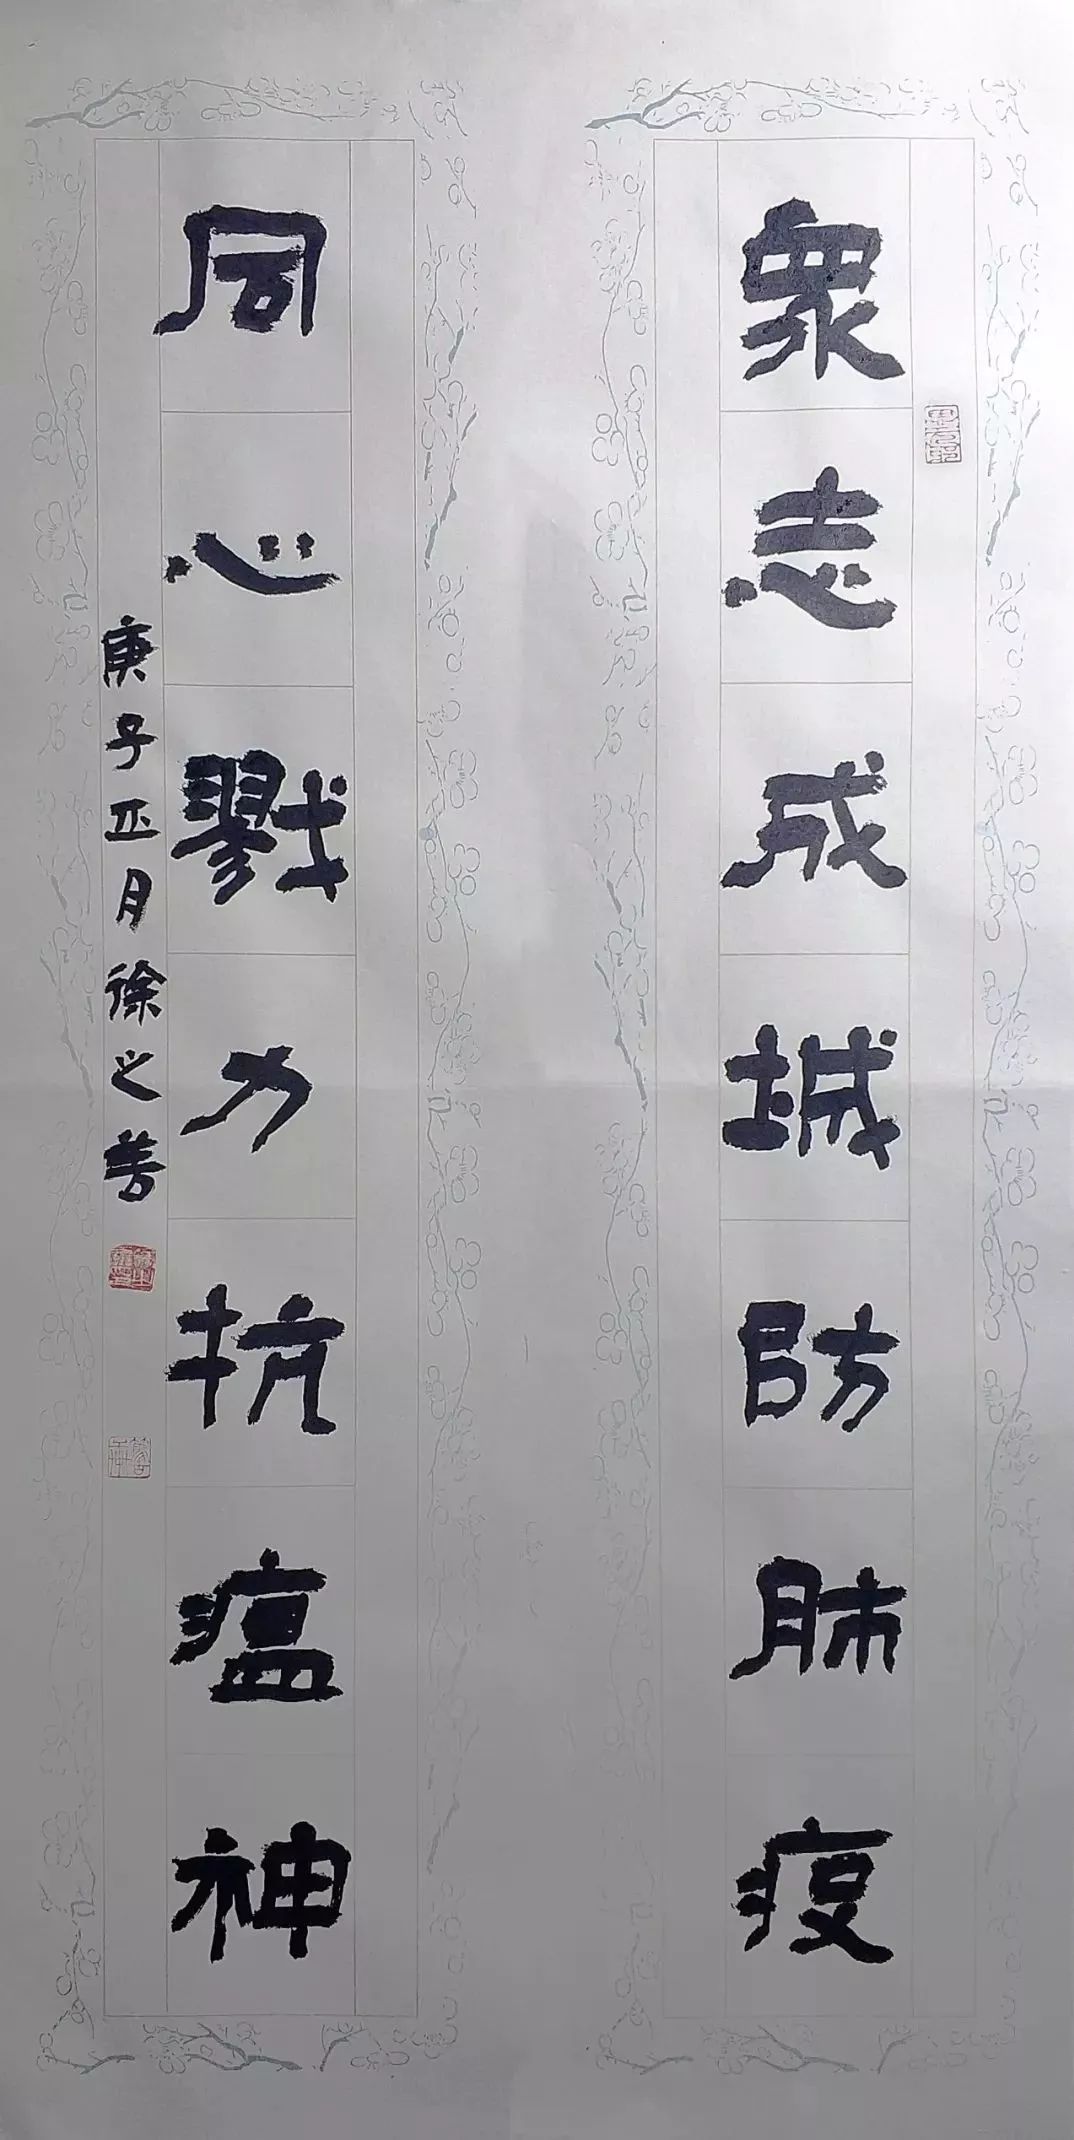 眾志成城防肺疫
同心戮力抗瘟神
庚子正月徐之善